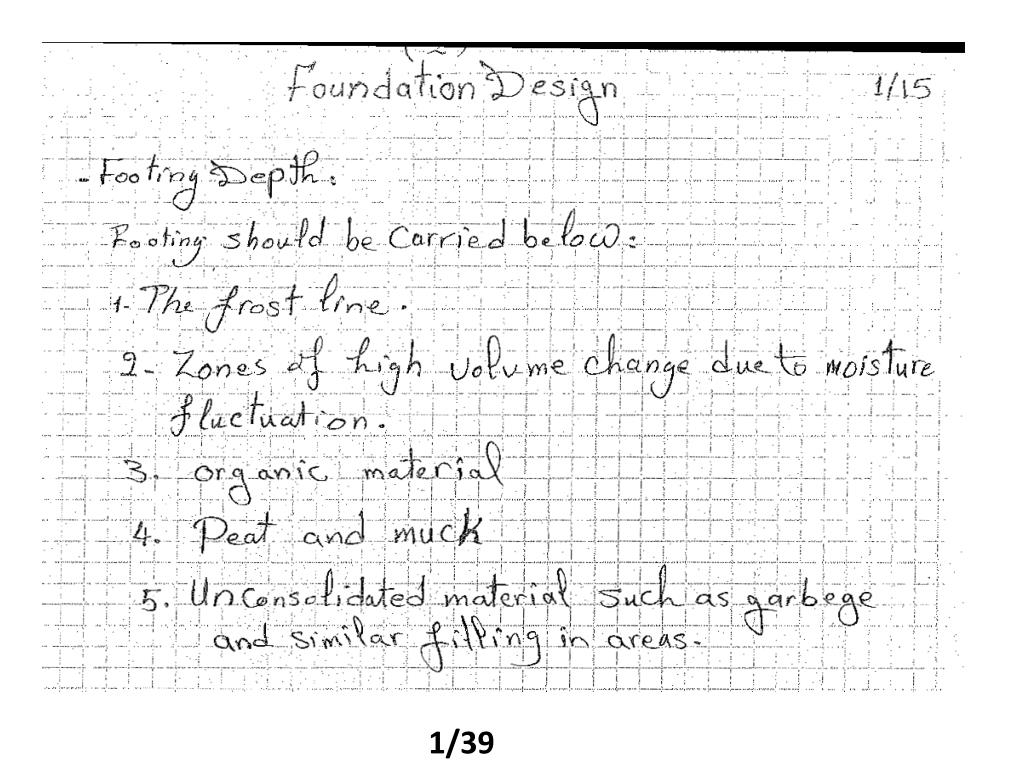 (2)
Foundation Design 1/15
- Footing Depth:
Footing should be Carried below:
1- The frost line.
2- Zones of high volume change due to moisture
fluctuation.
3. organic material
4. Peat and muck
5. Unconsolidated material such as garbege
and similar filling in areas.
1/39